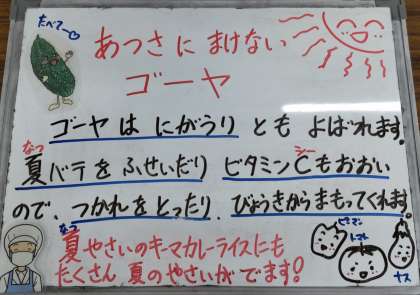 たべてー
あつさに まけない
ゴーヤ
ゴーヤは にがうり とも よばれます。
なつ シー
夏バテを ふせいだり ビタミンCもおおい
ので、つかれをとったり、びょうきからまもってくれます
なつ
夏やさいのキーマカレーライスにも
たくさん 夏のやさいがでます!
ピーマン
トマト
ナス